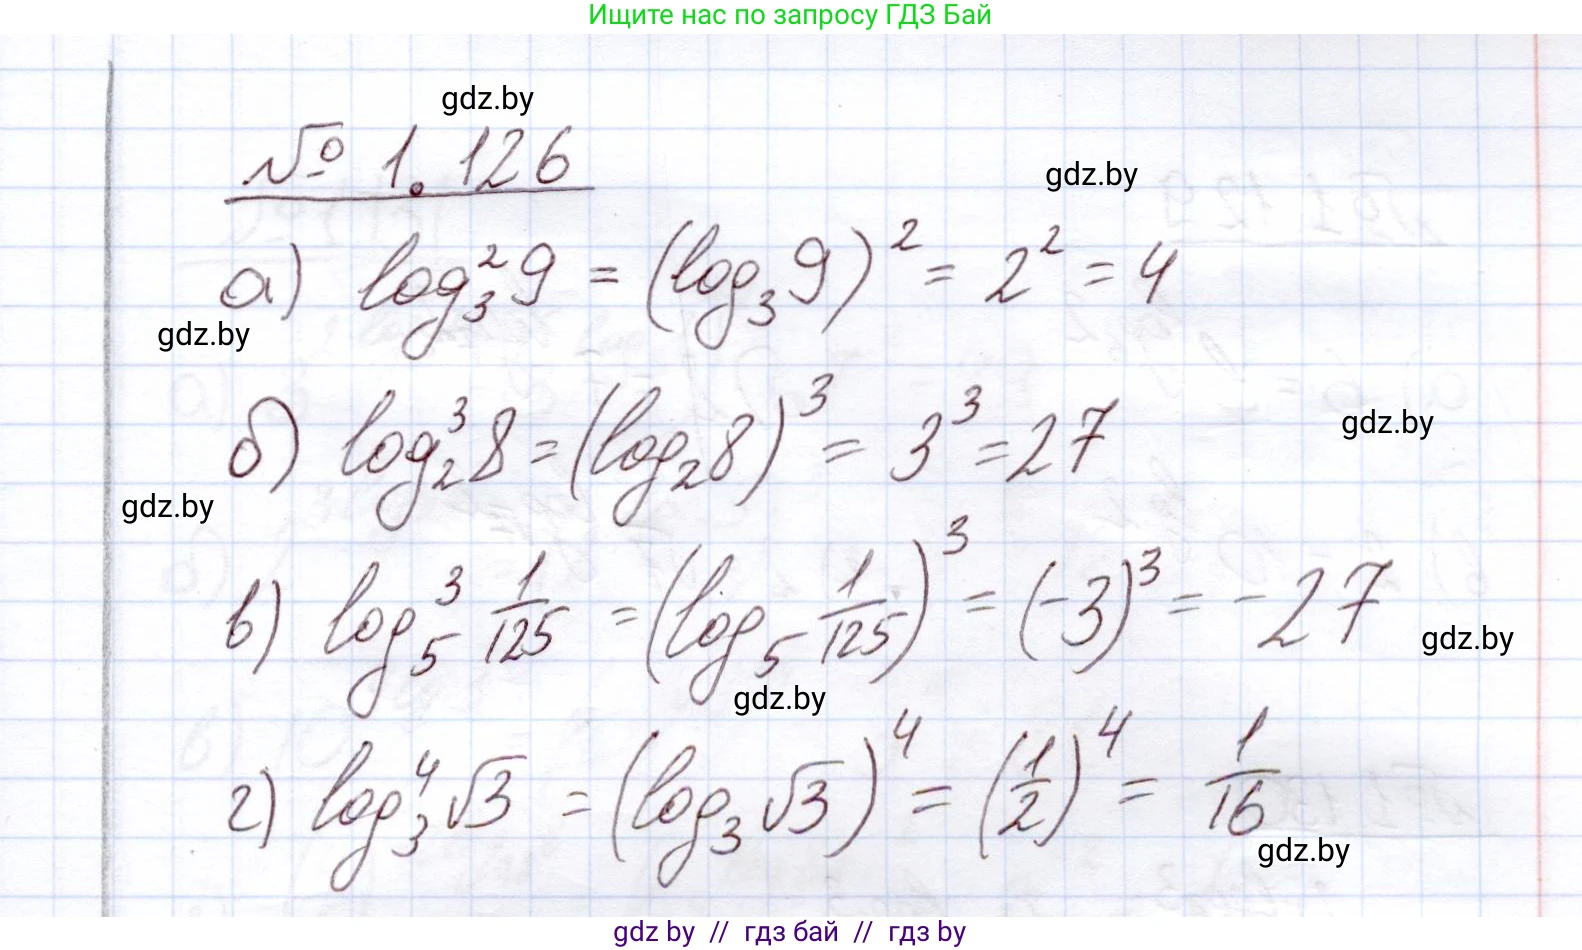 Ищите нас по запросу ГДЗ Бай
gdz.by
№ 1.126
gdz.by
а) log₃²9 = (log₃9)² = 2² = 4
gdz.by
б) log₂³8 = (log₂8)³ = 3³ = 27
gdz.by
gdz.by
в) log₅³ 1/125 = (log₅ 1/125)³ = (-3)³ = -27
gdz.by
gdz.by
г) log₃⁴√3 = (log₃√3)⁴ = (1/2)⁴ = 1/16
gdz.by
gdz by // гдз бай // гдз by